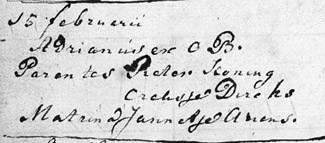 15 februarii
Adrianus ex O B.
Parentes Pieter Koning
Dircks
Matrina Jannetje Arens.